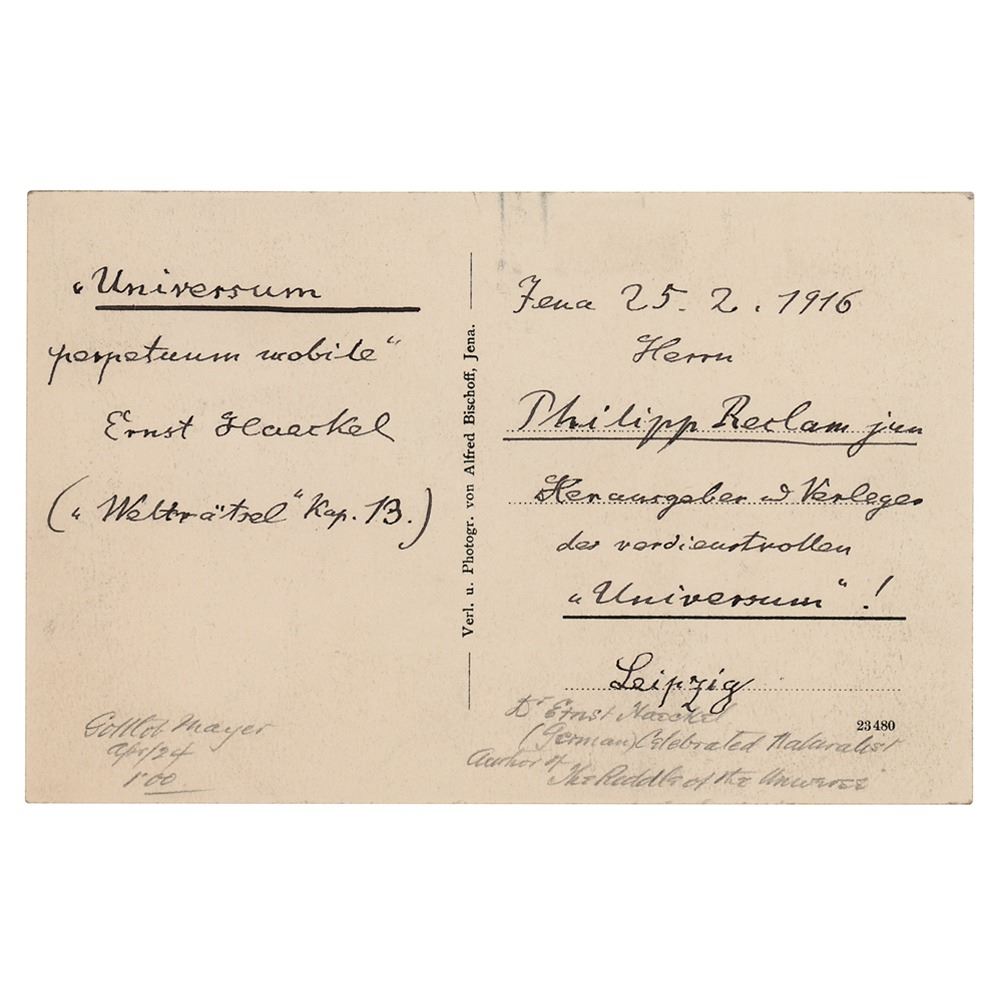 „Universum
perpetuum mobile“
Ernst Haeckel
(„Welträtsel“ Kap. 13.)
Verl. u. Photogr. von Alfred Bischoff, Jena.
Jena 25. 2. 1916
Herrn
Philipp Reclam jun
Herausgeber u Verleger
des verdienstvollen
„Universum“ !
Leipzig
23480
Gottlob Mayer
Apr/24
1.00
Dr Ernst Haeckel
(German) Celebrated Naturalist
Author of
The Riddle of the Universe